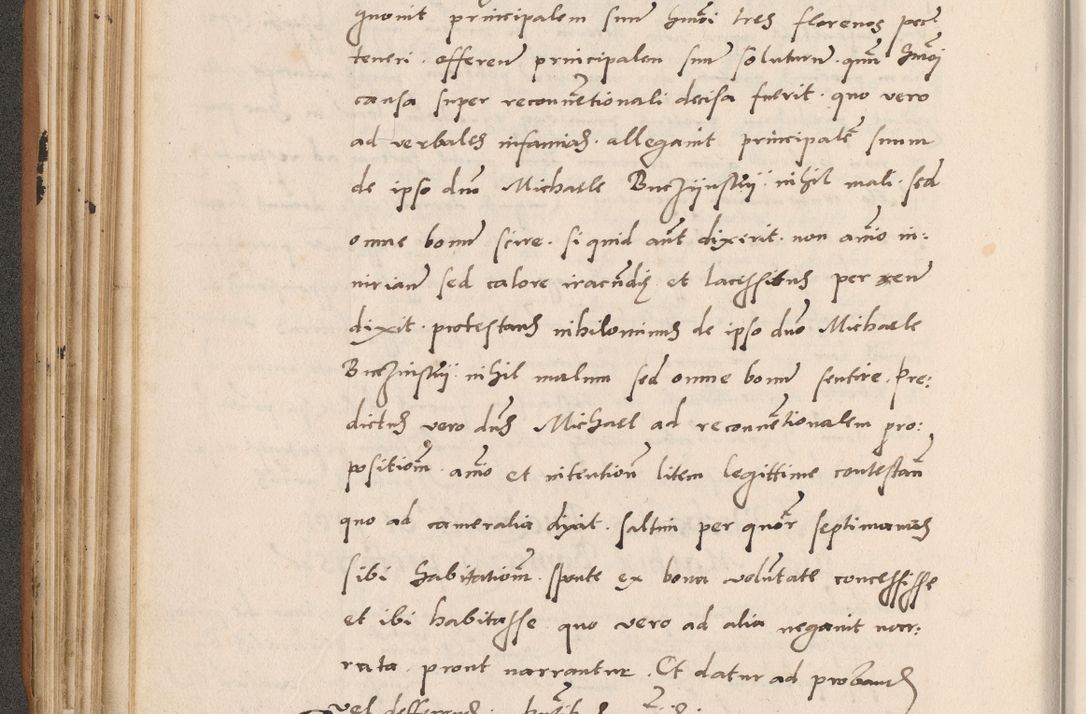 quouit principalem suu hmoi tres florenos pec
teneri . offeren principalem suu soluturu . qum hmoi
causa super reconuetionali decisa fuerit . quo vero
ad verbales infamias . allegauit principale suum
de ipso dno Michaele nihil mali . sed
omne bonu scire . si quid aut dixerit . non aio in:
iurian sed calore iracudis et lacessitus per reu
dixit . protestans nihilominus de ipso dno Michaele
nihil malum sed omne bonu sentire . Pre:
dictus vero dns Michael ad reconuetionalem pro:
positiom . aio et intention litem legittime contestan
quo ad cameralia dixit . saltim per quor septimanas
sibi habitatiom . spote ex bona volutate concessisse
et ibi habitasse quo vero ad alia negauit nar:
rata . prout narrantur . Et datur ad proband
vel defferend